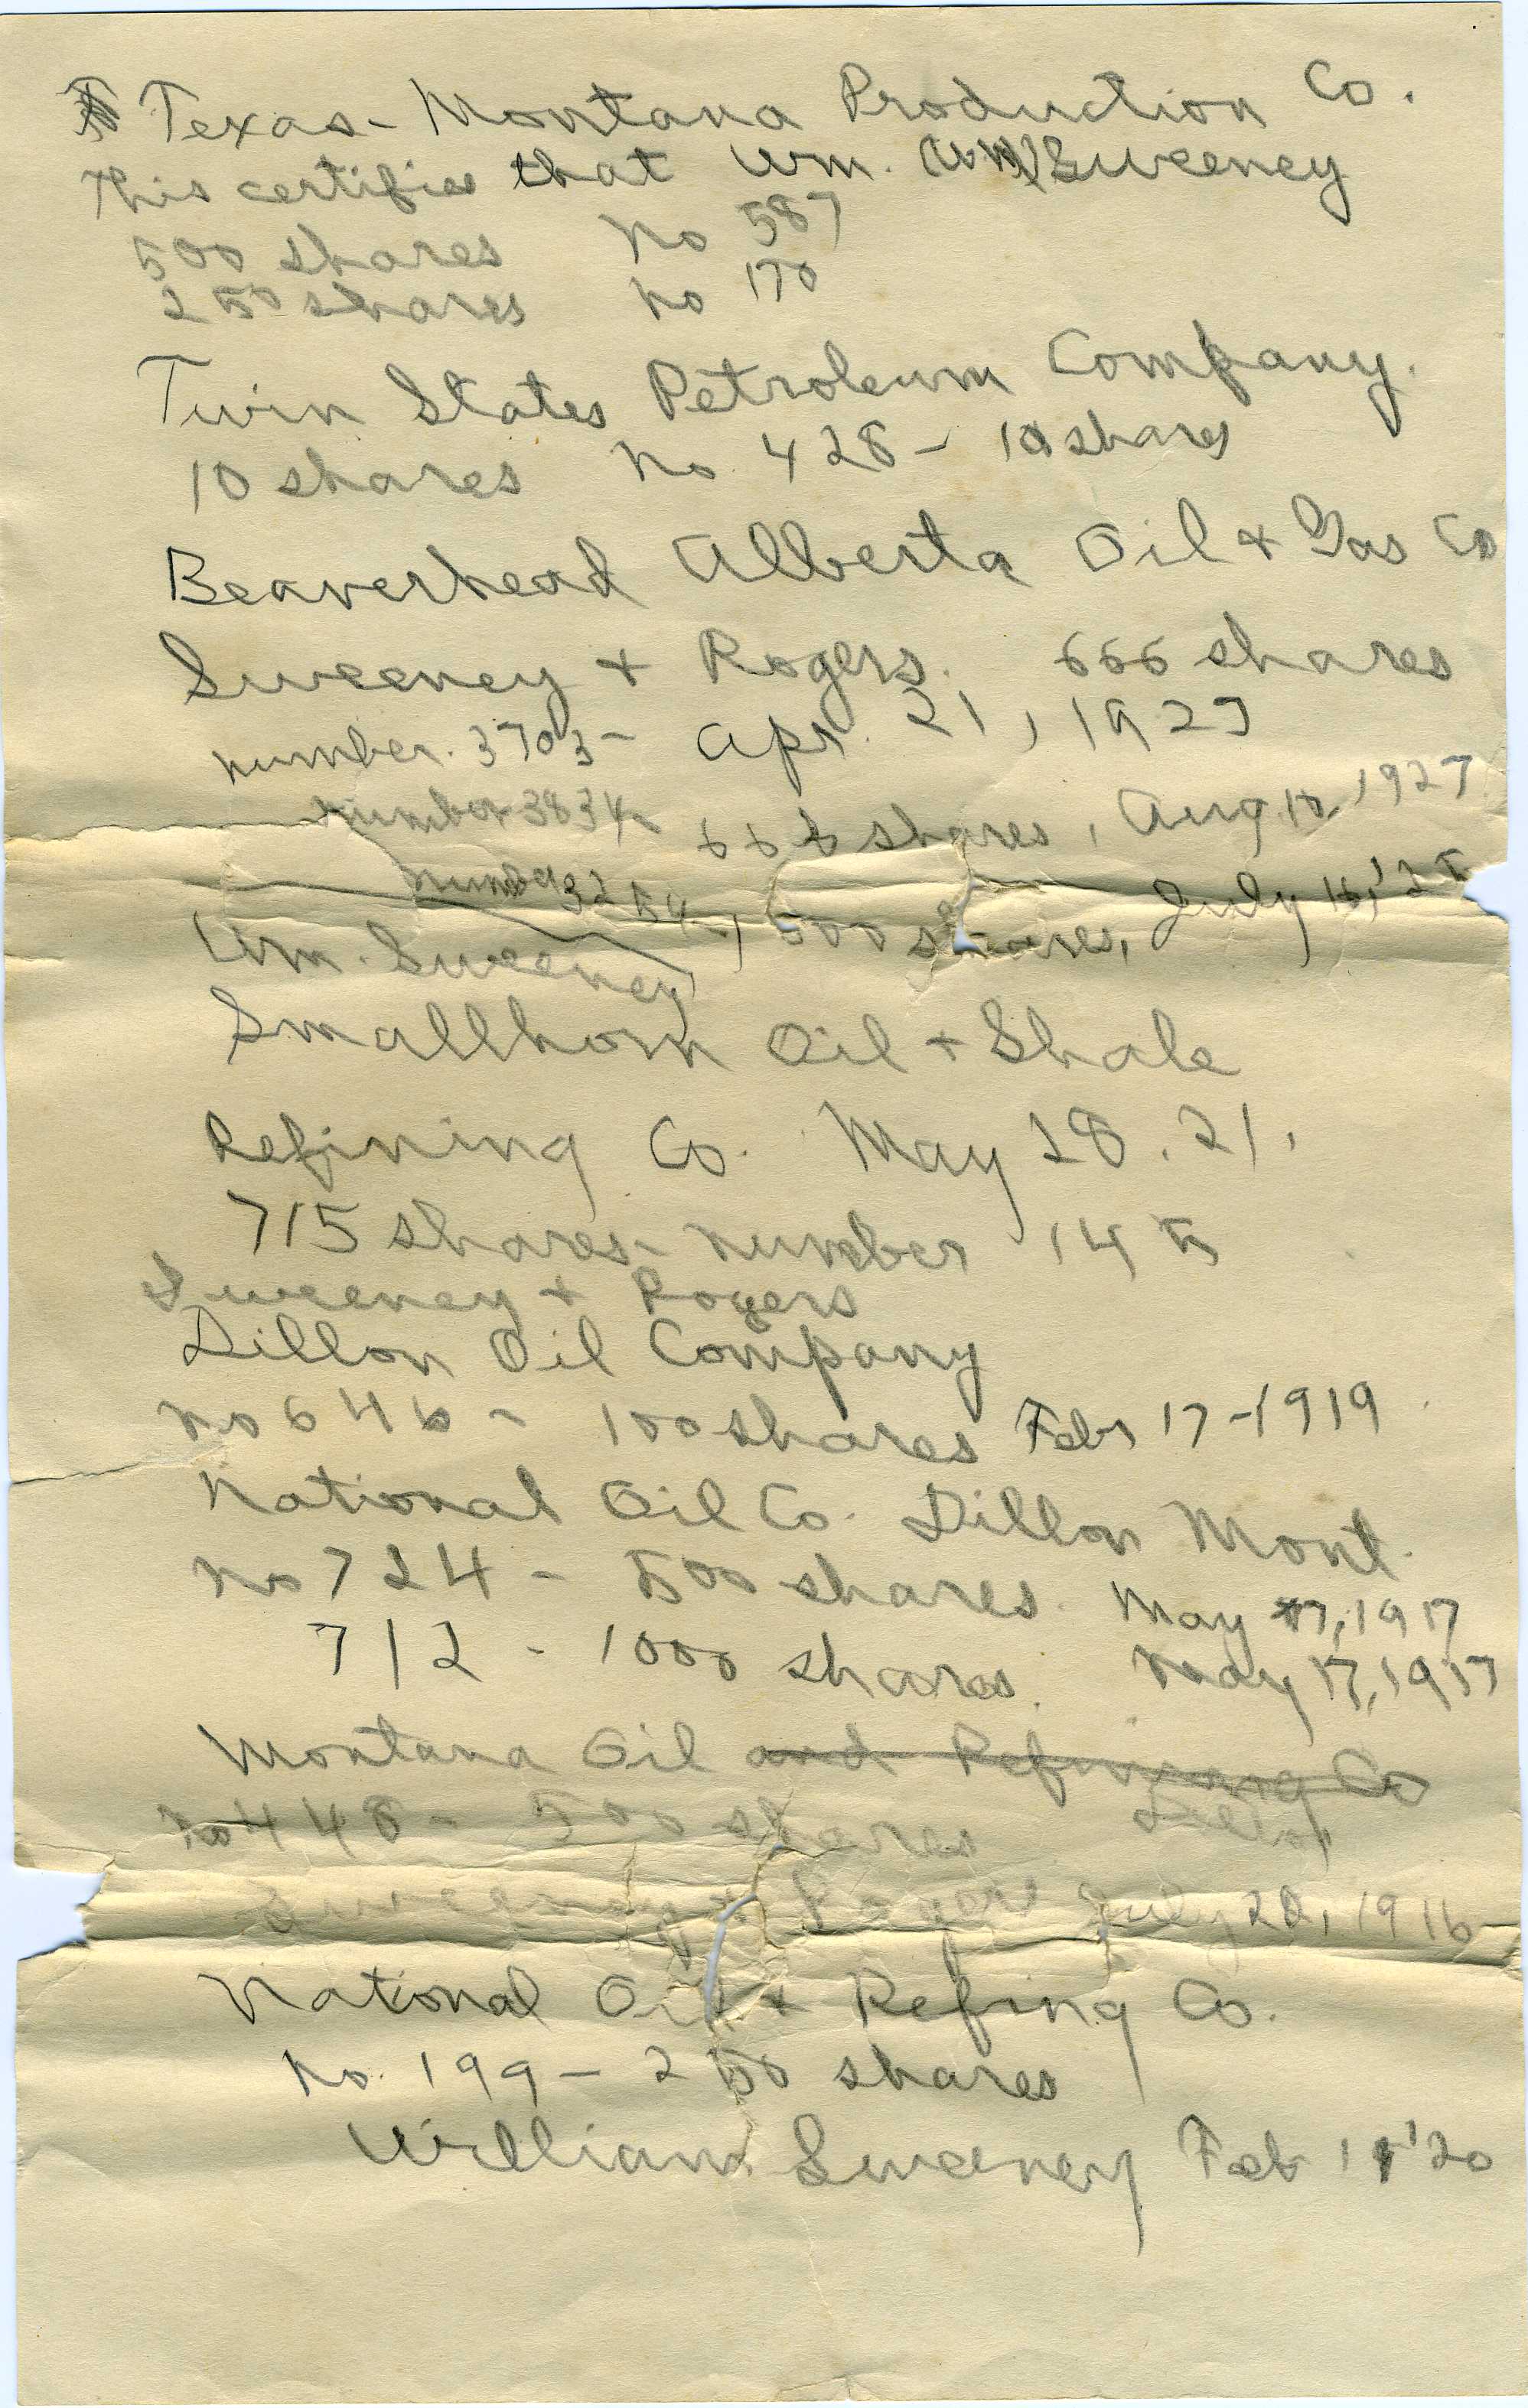 Texas-Montana Production Co.
This certifies that Wm. Sweeney
500 shares No 587
250 shares No 170
Twin States Petroleum Company.
10 shares No. 428 - 10 shares
Beaverhead Alberta Oil + Gas Co
Sweeney + Rogers. 666 shares
number. 3703 - Apr. 21, 1927
number 3834 - 666 shares, Aug. 10, 1927
number 3254, 500 shares, July 16, '25
Wm. Sweeney
Smallhorn Oil + Shale
Refining Co. May 28. 21.
715 shares - number 145
Sweeney + Rogers
Dillon Oil Company
No 646 - 100 shares Febr 17 - 1919
National Oil Co. Dillon Mont.
No 724 - 500 shares. May 17, 1917
712 - 1000 shares. May 17, 1917
Montana Oil and Refining Co
No 448 - 500 shares Dillon
Sweeney + Rogers July 28, 1916
National Oil + Refing Co.
No. 199 - 250 shares
William Sweeney Feb 11 '20